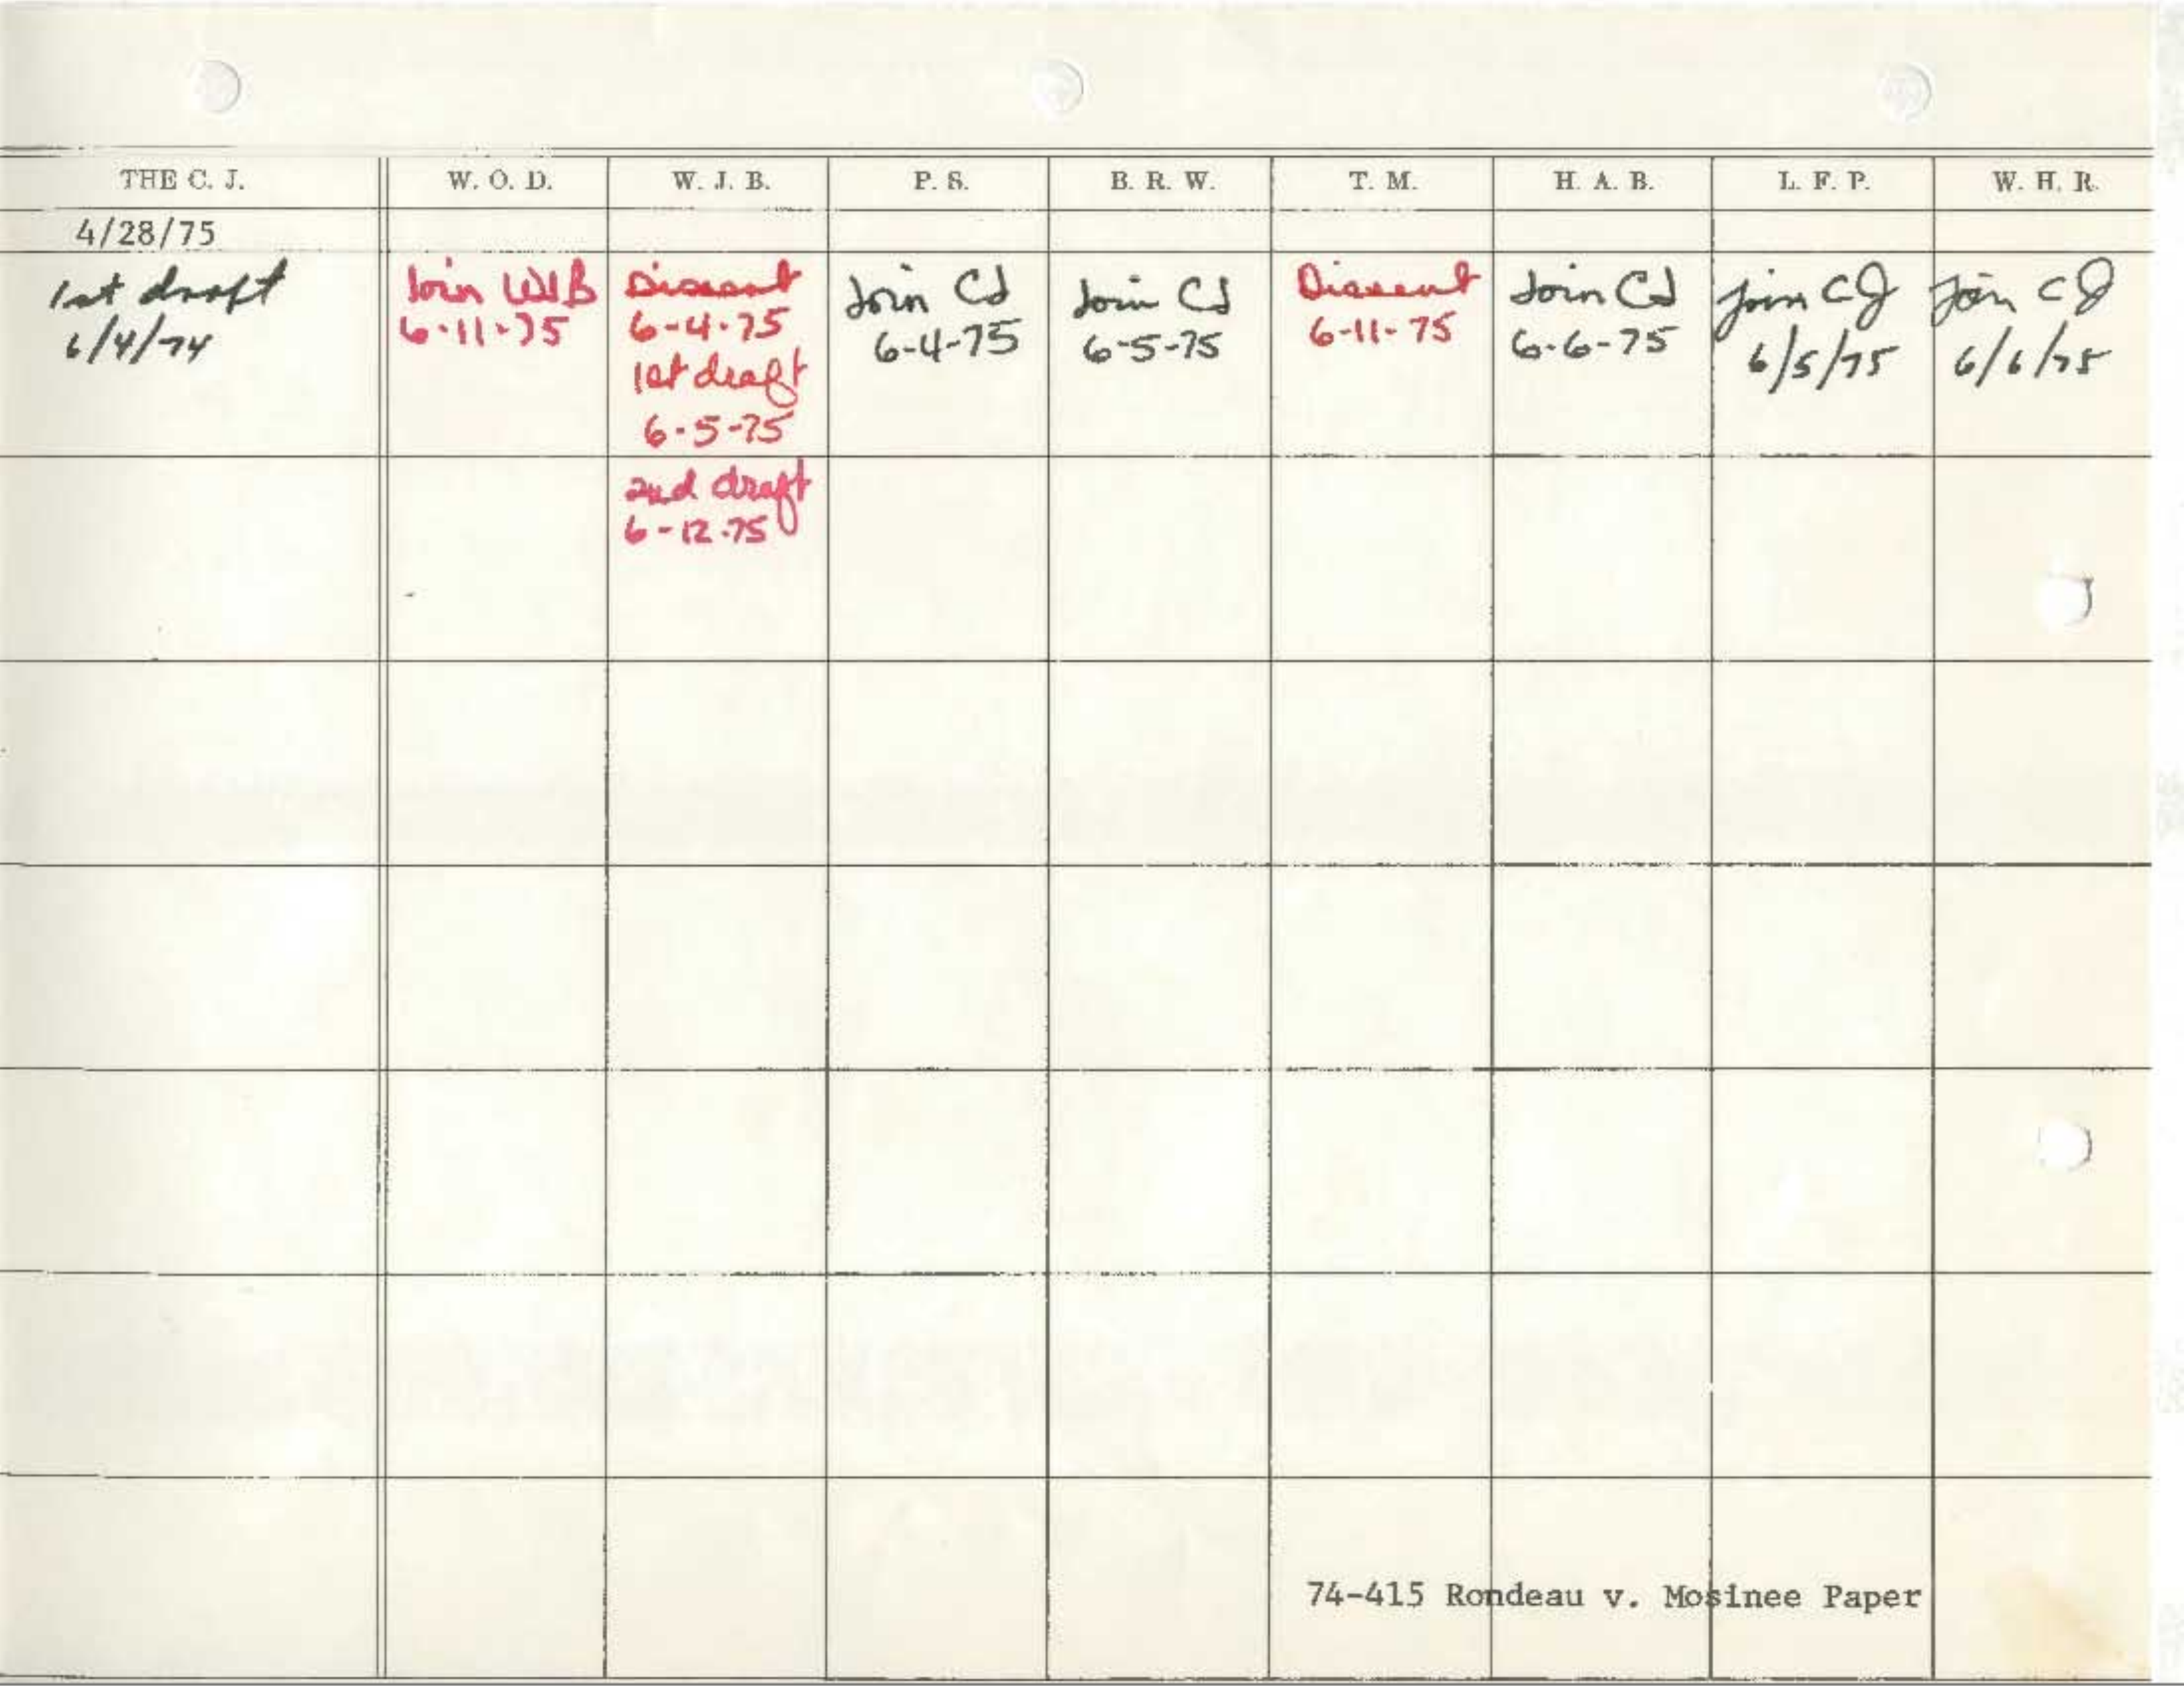 THE C. J. W. O. D. W. J. B. P. S. B. R. W. T. M. H. A. B. L. F. P. W. H. R.
4/28/75
1st draft
6/4/74
Join WJB
6-11-75
Dissent
6-4-75
1st draft
6-5-75
2nd draft
6-12-75
Join CJ
6-4-75
Join CJ
6-5-75
Dissent
6-11-75
Join CJ
6-6-75
Join CJ
6/5/75
Join CJ
6/6/75
74-415 Rondeau v. Mosinee Paper